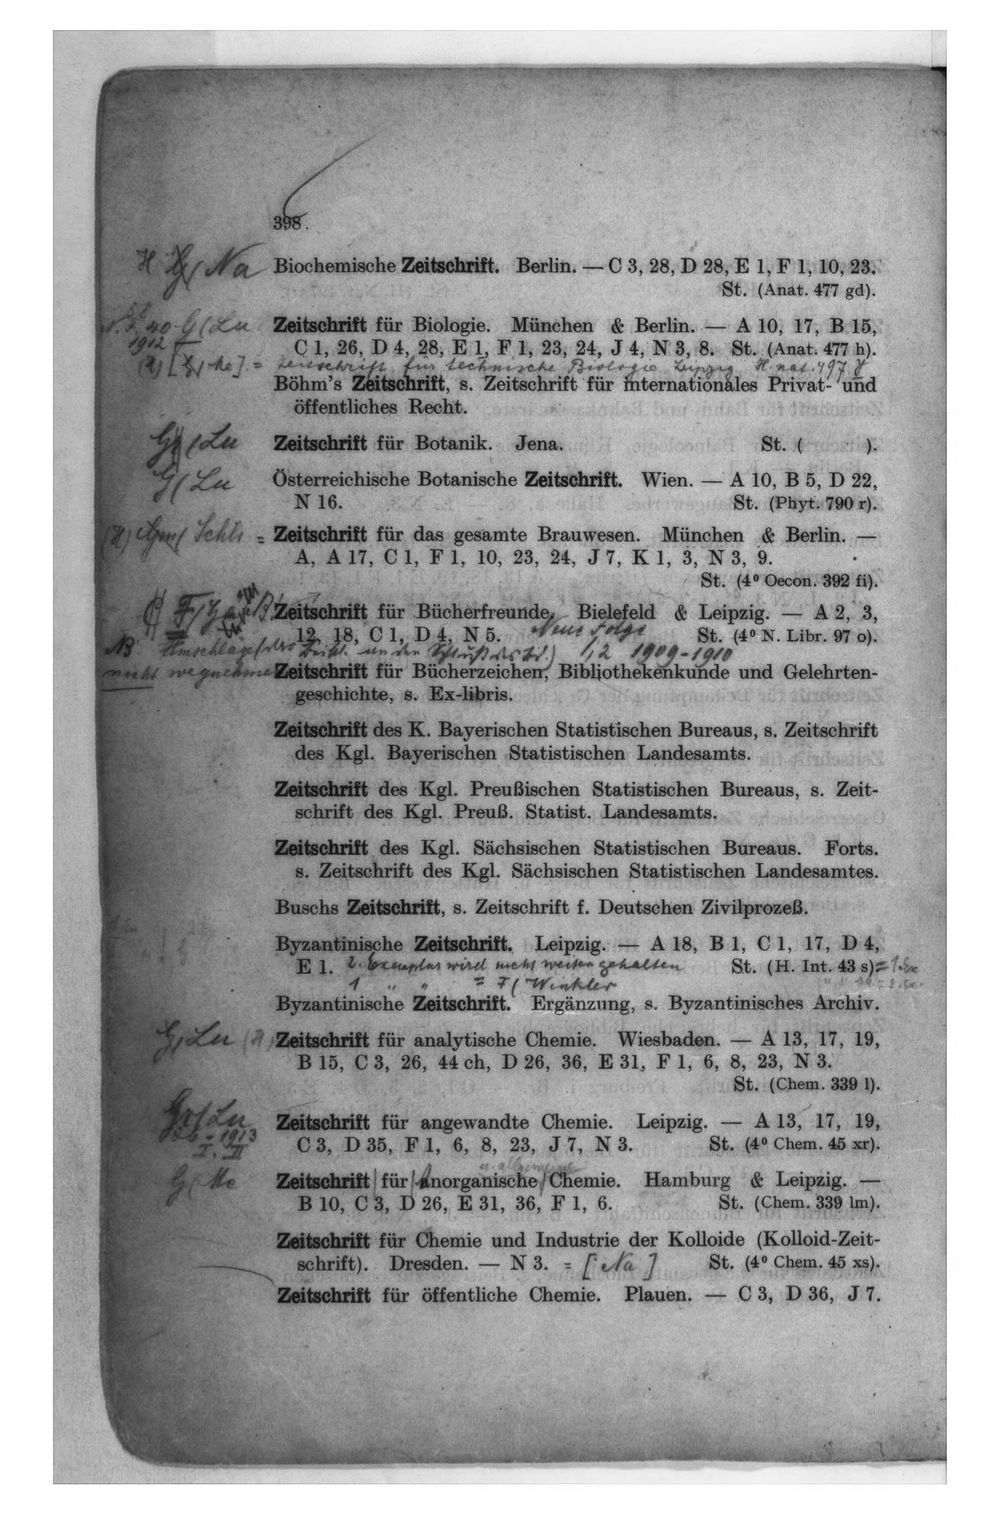 398.
Na Biochemische Zeitschrift. Berlin. — C 3, 28, D 28, E 1, F 1, 10, 23.
St. (Anat. 477 gd).
Lu Zeitschrift für Biologie. München & Berlin. — A 10, 17, B 15,
1912 C 1, 26, D 4, 28, E 1, F 1, 23, 24, J 4, N 3, 8. St. (Anat. 477 h).
= Zeitschrift für technische Biologie Leipzig H. nat.
Böhm's Zeitschrift, s. Zeitschrift für internationales Privat- und
öffentliches Recht.
Lu Zeitschrift für Botanik. Jena. St. ( ).
G/Lu Österreichische Botanische Zeitschrift. Wien. — A 10, B 5, D 22,
N 16. St. (Phyt. 790 r).
(H) = Zeitschrift für das gesamte Brauwesen. München & Berlin. —
A, A 17, C 1, F 1, 10, 23, 24, J 7, K 1, 3, N 3, 9.
St. (4⁰ Oecon. 392 fi).
Zeitschrift für Bücherfreunde, Bielefeld & Leipzig. — A 2, 3,
12, 18, C 1, D 4, N 5. Neue Folge St. (4⁰ N. Libr. 97 o).
NB 1,2 1909-1910
nicht wegnehmen Zeitschrift für Bücherzeichen, Bibliothekenkunde und Gelehrten-
geschichte, s. Ex-libris.
Zeitschrift des K. Bayerischen Statistischen Bureaus, s. Zeitschrift
des Kgl. Bayerischen Statistischen Landesamts.
Zeitschrift des Kgl. Preußischen Statistischen Bureaus, s. Zeit-
schrift des Kgl. Preuß. Statist. Landesamts.
Zeitschrift des Kgl. Sächsischen Statistischen Bureaus. Forts.
s. Zeitschrift des Kgl. Sächsischen Statistischen Landesamtes.
Buschs Zeitschrift, s. Zeitschrift f. Deutschen Zivilprozeß.
Byzantinische Zeitschrift. Leipzig. — A 18, B 1, C 1, 17, D 4,
E 1. 2. Exemplar wird nicht weiter gehalten St. (H. Int. 43 s) = 1. Ex
1 " " = F/Winkler " " " = 2. Ex.
Byzantinische Zeitschrift. Ergänzung, s. Byzantinisches Archiv.
G/Lu (H) Zeitschrift für analytische Chemie. Wiesbaden. — A 13, 17, 19,
B 15, C 3, 26, 44 ch, D 26, 36, E 31, F 1, 6, 8, 23, N 3.
St. (Chem. 339 l).
Lu Zeitschrift für angewandte Chemie. Leipzig. — A 13, 17, 19,
1913 C 3, D 35, F 1, 6, 8, 23, J 7, N 3. St. (4⁰ Chem. 45 xr).
I. II
u. allgemeine
G/ Zeitschrift für anorganische Chemie. Hamburg & Leipzig. —
B 10, C 3, D 26, E 31, 36, F 1, 6. St. (Chem. 339 lm).
Zeitschrift für Chemie und Industrie der Kolloide (Kolloid-Zeit-
schrift). Dresden. — N 3. = [Na] St. (4⁰ Chem. 45 xs).
Zeitschrift für öffentliche Chemie. Plauen. — C 3, D 36, J 7.